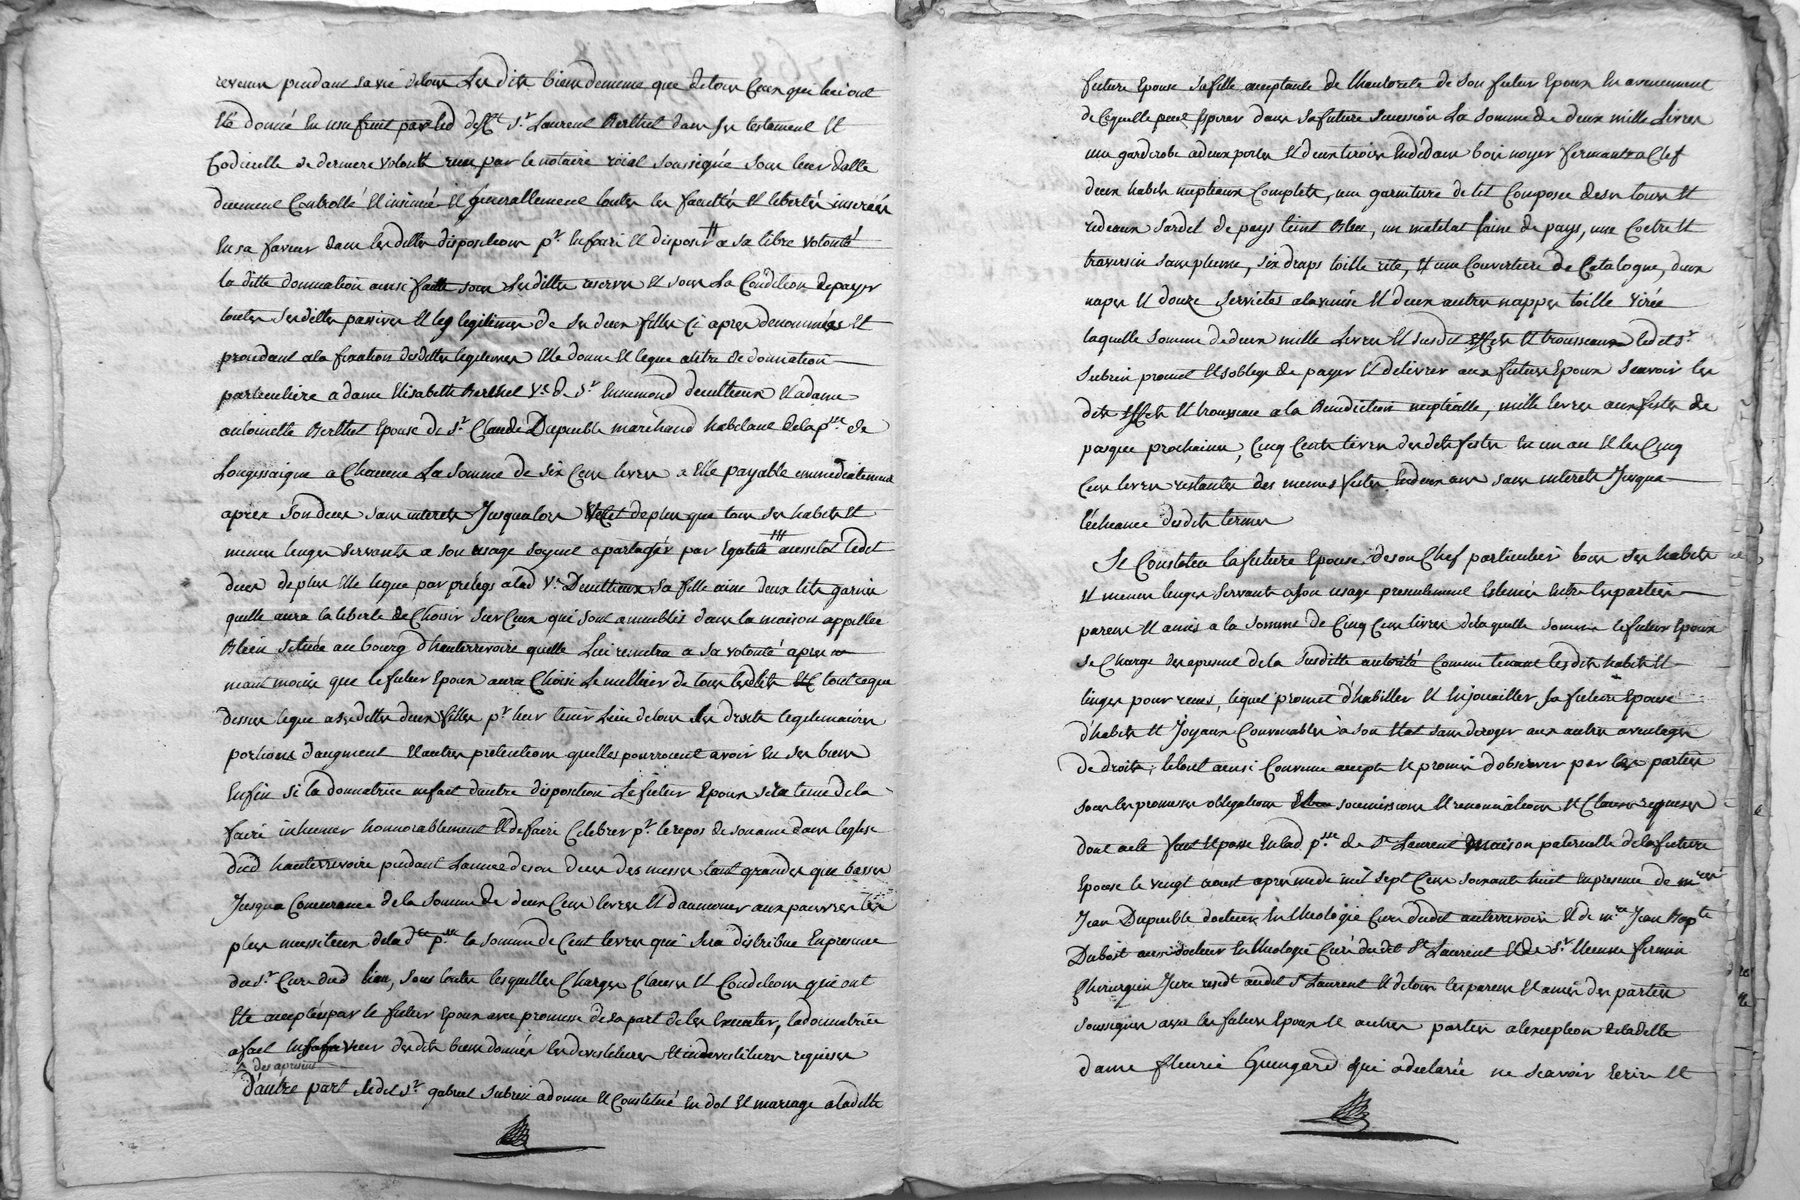 revenu pendant sa vie de tous les dits biens de meme que de tous ceux qui luy ont
été donné en usufruit par led deft Sr Laurent Berthet dans ses testament et
Codicille de derniere volonté reçu par le notaire roial soussigné sous leur datte
duement Controllé et insinué et generallement toutes les facultés et libertés inserées
en sa faveur dans lesdittes dispositions pr en faire et disposer # a sa libre volonté
la ditte donnation ainsi faitte sous lesdittes reserves et sous la Condition de payer
toutes ses dettes passives et les legitimes de ses deux filles ci apres denommées et
procedant a la fixation desdittes legitimes elle donne et legue a titre de donnation
particuliere a dame Elisabeth Berthet Ve de Sr Ennemond et a dame
antoinette Berthet Epouse de Sr Claude Dupeuble marchand habitant de la psse de
Longessaigne a Chacune la somme de six cens livres a elle payable immediatement
apres son deces sans interets jusqualors et de plus que tous ses habits et
menus linges servants a son usage soyent a partager par egalité aussitot ledit
deces de plus elle legue par prelegs a lad Ve sa fille ainé deux lits garnis
quelle aura la liberté de choisir sur ceux qui sont a meublés dans la maison appellée
située au bourg d'hauterrivoire quelle lui remettra a sa volonté apres
neant moins que le futur Epoux aura Choisi le meilleur de tous lesdits tout ce que
dessus legue a sesdittes deux filles pr leur tenir lieu de tous les droits legitimaires
portions d'augment et autres pretentions quelles pourroient avoir en ses biens
Enfin si la donnatrice ne fait d'autre disposition le futur Epoux sera tenu de la
faire inhumer honnorablement et de faire Celebrer pr le repos de son ame dans leglise
dud hauterrivoire pendant lannée de son deces des messes tant grandes que basses
jusqua Concurrence de la somme de deux cens livres et d'aumoner aux pauvres les
plus necessiteux de la de psse la somme de Cent livres qui sera distribué en presence
du Sr Curé dud lieu, sous toutes lesquelles Charges Clauses et Conditions qui ont
été acceptées par le futur Epoux avec promesse de sa part de les executer, la donnatrice
a fait en sa faveur desdits biens donnés les devestitures et investitures requises
des apresent
d'autre part ledit Sr gabriel Subrin a donne et Constitué en dot et mariage a laditte
future Epouse sa fille acceptante de lhautorité de son futur Epoux en avencement
de ce quelle peut esperer dans sa future succession la somme de deux mille livres
une garderobe a deux portes et deux tiroirs en dedans bois noyer fermants a Clef
deux habits nuptiaux Complets, une garniture de lit Composé de ses tours et
rideaux sardet de pays teint Bleu, un matelat laine de pays, une Coetre et
traversin sans plume, six draps toille rite, et une Couverture de Catalogne, deux
napes et douze serviettes a la venise et deux autres nappes toille virée
laquelle somme de deux mille livres et susdit effets et trousseaux ledit Sr
Subrin promet et soblige de payer et delivrer aux futurs Epoux scavoir les
dits effets et trousseau a la Benediction nuptialle, mille livres aux fetes de
pasque prochaines, Cinq Cents livres desdits fetes en un an et les Cinq
Cens livres restantes des memes fetes en deux ans sans interets jusqua
l'echeance desdits termes
Se Constitue la future Epouse de son Chef particulier tous ses habits
et menus linges servants a son usage presentement estimés entre les parties
parens et amis a la somme de Cinq Cens livres de laquelle somme le futur Epoux
se Charge des apresent de la susditte autorité comme tenant lesdits habits et
linges pour reçus, lequel promet d'habiller et enjouailler sa future Epouse
d'habits et joyaux Convenables a son etat sans deroger aux autres avantages
de droits, le tout ainsi Convenu accepté et promis d'observer par les parties
sous les promesses obligations soumissions et renonciations et Clauses requises
dont acte fait et passe en lad psse de St Laurent maison paternelle de la future
Epouse le vingt aoust apres midi mil sept Cens soixante huit en presence de mres
Jean Dupeuble docteur en theologie Curé dudit auterrivoire et de mre Jean Bapte
Duboit aussi docteur en theologie Curé dudit St Laurent et de Sr fermin
Chirurgien juré residt audit St Laurent et de tous les parens et amis des parties
soussignés avec les futurs Epoux et autres parties a lexception de laditte
dame fleurie Guingard qui a declarée ne scavoir ecrire et